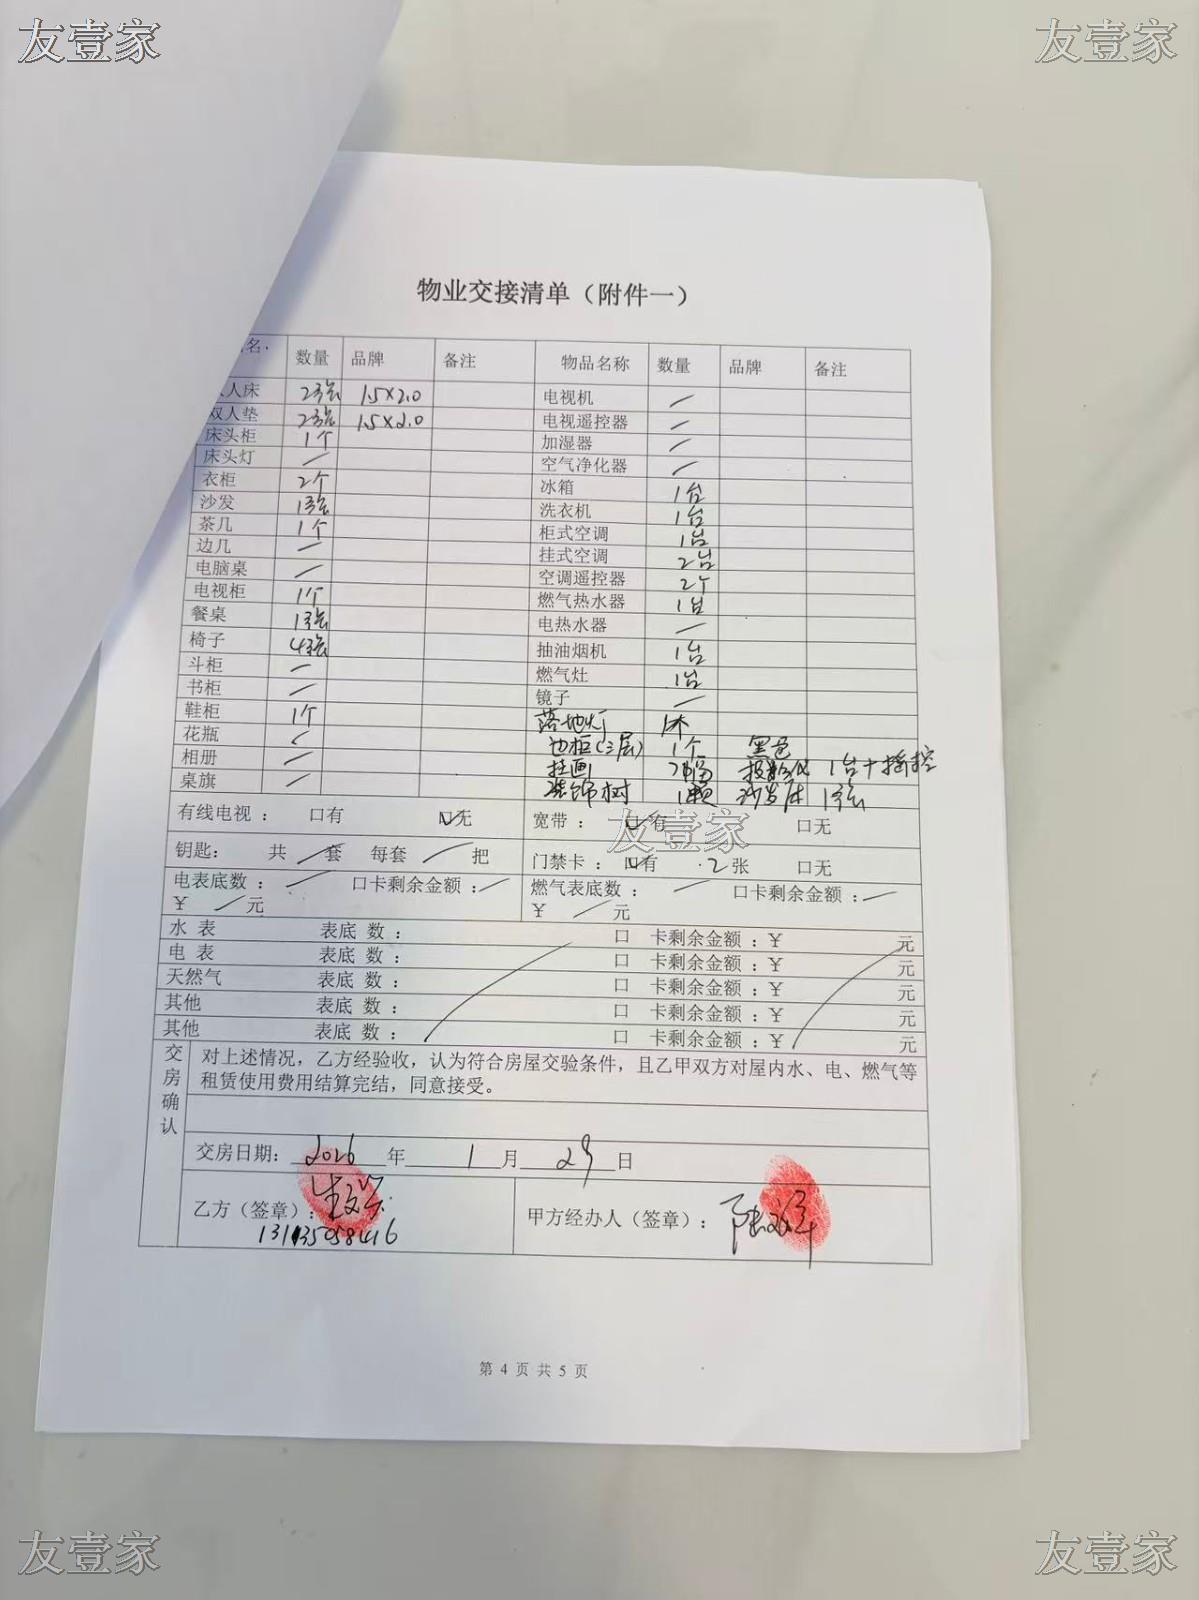 友壹家 友壹家
物业交接清单（附件一）
名 数量 品牌 备注 物品名称 数量 品牌 备注
人床 2张 1.5×2.0 电视机 /
双人垫 2张 1.5×2.0 电视遥控器 /
床头柜 1个 加湿器 /
床头灯 / 空气净化器 /
衣柜 2个 冰箱 1台
沙发 1张 洗衣机 1台
茶几 1个 柜式空调 1台
边几 / 挂式空调 2台
电脑桌 / 空调遥控器 2个
电视柜 1个 燃气热水器 1台
餐桌 1张 电热水器 /
椅子 4张 抽油烟机 1台
斗柜 / 燃气灶 1台
书柜 / 镜子 /
鞋柜 1个 落地灯
花瓶 / 边柜(三层) 1个 黑色
相册 / 挂画 投影仪 1台+摇控
桌旗 / 装饰树 1颗 沙发床 1张
有线电视： 口有 ☑无 宽带： ☑有 口无
友壹家
钥匙： 共 / 套 每套 / 把 门禁卡： ☑有 2张 口无
电表底数： / 口卡剩余金额：/ 燃气表底数： / 口卡剩余金额：/
¥ / 元 ¥ / 元
水 表 表底 数： 口 卡剩余金额：¥ 元
电 表 表底 数： 口 卡剩余金额：¥ 元
天然气 表底 数： 口 卡剩余金额：¥ 元
其他 表底 数： 口 卡剩余金额：¥ 元
其他 表底 数： 口 卡剩余金额：¥ 元
交房确认
对上述情况，乙方经验收，认为符合房屋交验条件，且乙甲双方对屋内水、电、燃气等
租赁使用费用结算完结，同意接受。
交房日期： 2026 年 1 月 29 日
乙方（签章）： 甲方经办人（签章）：
第 4 页 共 5 页
友壹家 友壹家